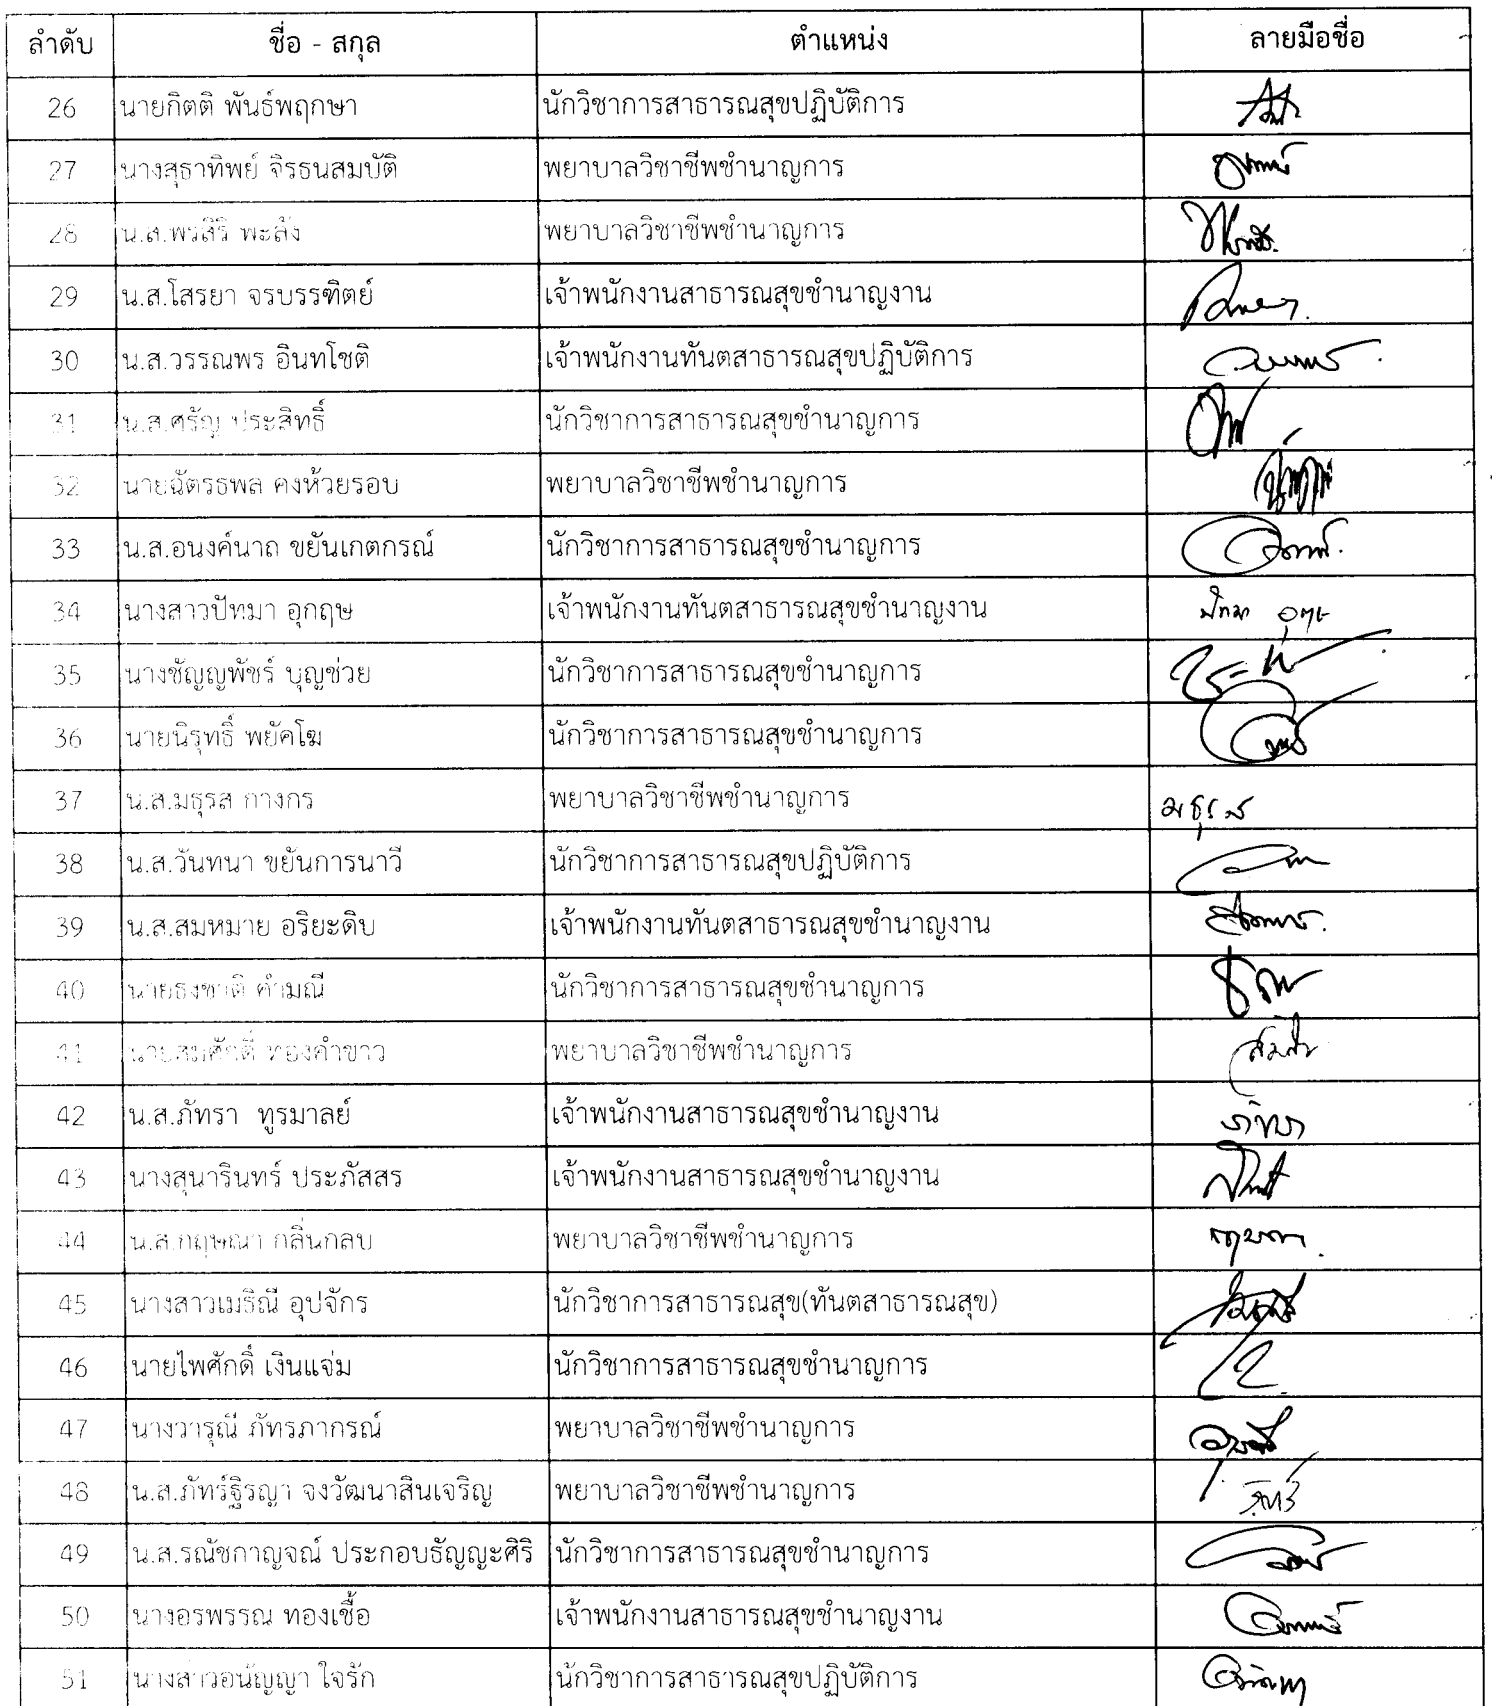 ลำดับ ชื่อ - สกุล ตำแหน่ง ลายมือชื่อ
26 นายกิตติ พันธ์พฤกษา นักวิชาการสาธารณสุขปฏิบัติการ
27 นางสุธาทิพย์ จิรธนสมบัติ พยาบาลวิชาชีพชำนาญการ
28 น.ส.พรสิริ พะลัง พยาบาลวิชาชีพชำนาญการ
29 น.ส.โสรยา จรบรรฑิตย์ เจ้าพนักงานสาธารณสุขชำนาญงาน
30 น.ส.วรรณพร อินทโชติ เจ้าพนักงานทันตสาธารณสุขปฏิบัติการ
31 น.ส.ศรัญ ประสิทธิ์ นักวิชาการสาธารณสุขชำนาญการ
32 นายฉัตรธพล คงห้วยรอบ พยาบาลวิชาชีพชำนาญการ
33 น.ส.อนงค์นาถ ขยันเกตกรณ์ นักวิชาการสาธารณสุขชำนาญการ
34 นางสาวปัทมา อุกฤษ เจ้าพนักงานทันตสาธารณสุขชำนาญงาน ปัทมา อุกฤษ
35 นางชัญญพัชร์ บุญช่วย นักวิชาการสาธารณสุขชำนาญการ
36 นายนิรุทธิ์ พยัคโฆ นักวิชาการสาธารณสุขชำนาญการ
37 น.ส.มธุรส กางกร พยาบาลวิชาชีพชำนาญการ มธุรส
38 น.ส.วันทนา ขยันการนาวี นักวิชาการสาธารณสุขปฏิบัติการ
39 น.ส.สมหมาย อริยะดิบ เจ้าพนักงานทันตสาธารณสุขชำนาญงาน
40 นายธงชาติ คำมณี นักวิชาการสาธารณสุขชำนาญการ
41 นายสมศักดิ์ ทองคำขาว พยาบาลวิชาชีพชำนาญการ
42 น.ส.ภัทรา ทูรมาลย์ เจ้าพนักงานสาธารณสุขชำนาญงาน ภัทรา
43 นางสุนารินทร์ ประภัสสร เจ้าพนักงานสาธารณสุขชำนาญงาน
44 น.ส.กฤษณา กลิ่นกลบ พยาบาลวิชาชีพชำนาญการ กฤษณา
45 นางสาวเมธิณี อุปจักร นักวิชาการสาธารณสุข(ทันตสาธารณสุข)
46 นายไพศักดิ์ เงินแจ่ม นักวิชาการสาธารณสุขชำนาญการ
47 นางวารุณี ภัทรภากรณ์ พยาบาลวิชาชีพชำนาญการ
48 น.ส.ภัทร์ฐิรญา จงวัฒนาสินเจริญ พยาบาลวิชาชีพชำนาญการ
49 น.ส.รณัชกาญจณ์ ประกอบธัญญะศิริ นักวิชาการสาธารณสุขชำนาญการ
50 นางอรพรรณ ทองเชื้อ เจ้าพนักงานสาธารณสุขชำนาญงาน
51 นางสาวอนัญญา ใจรัก นักวิชาการสาธารณสุขปฏิบัติการ